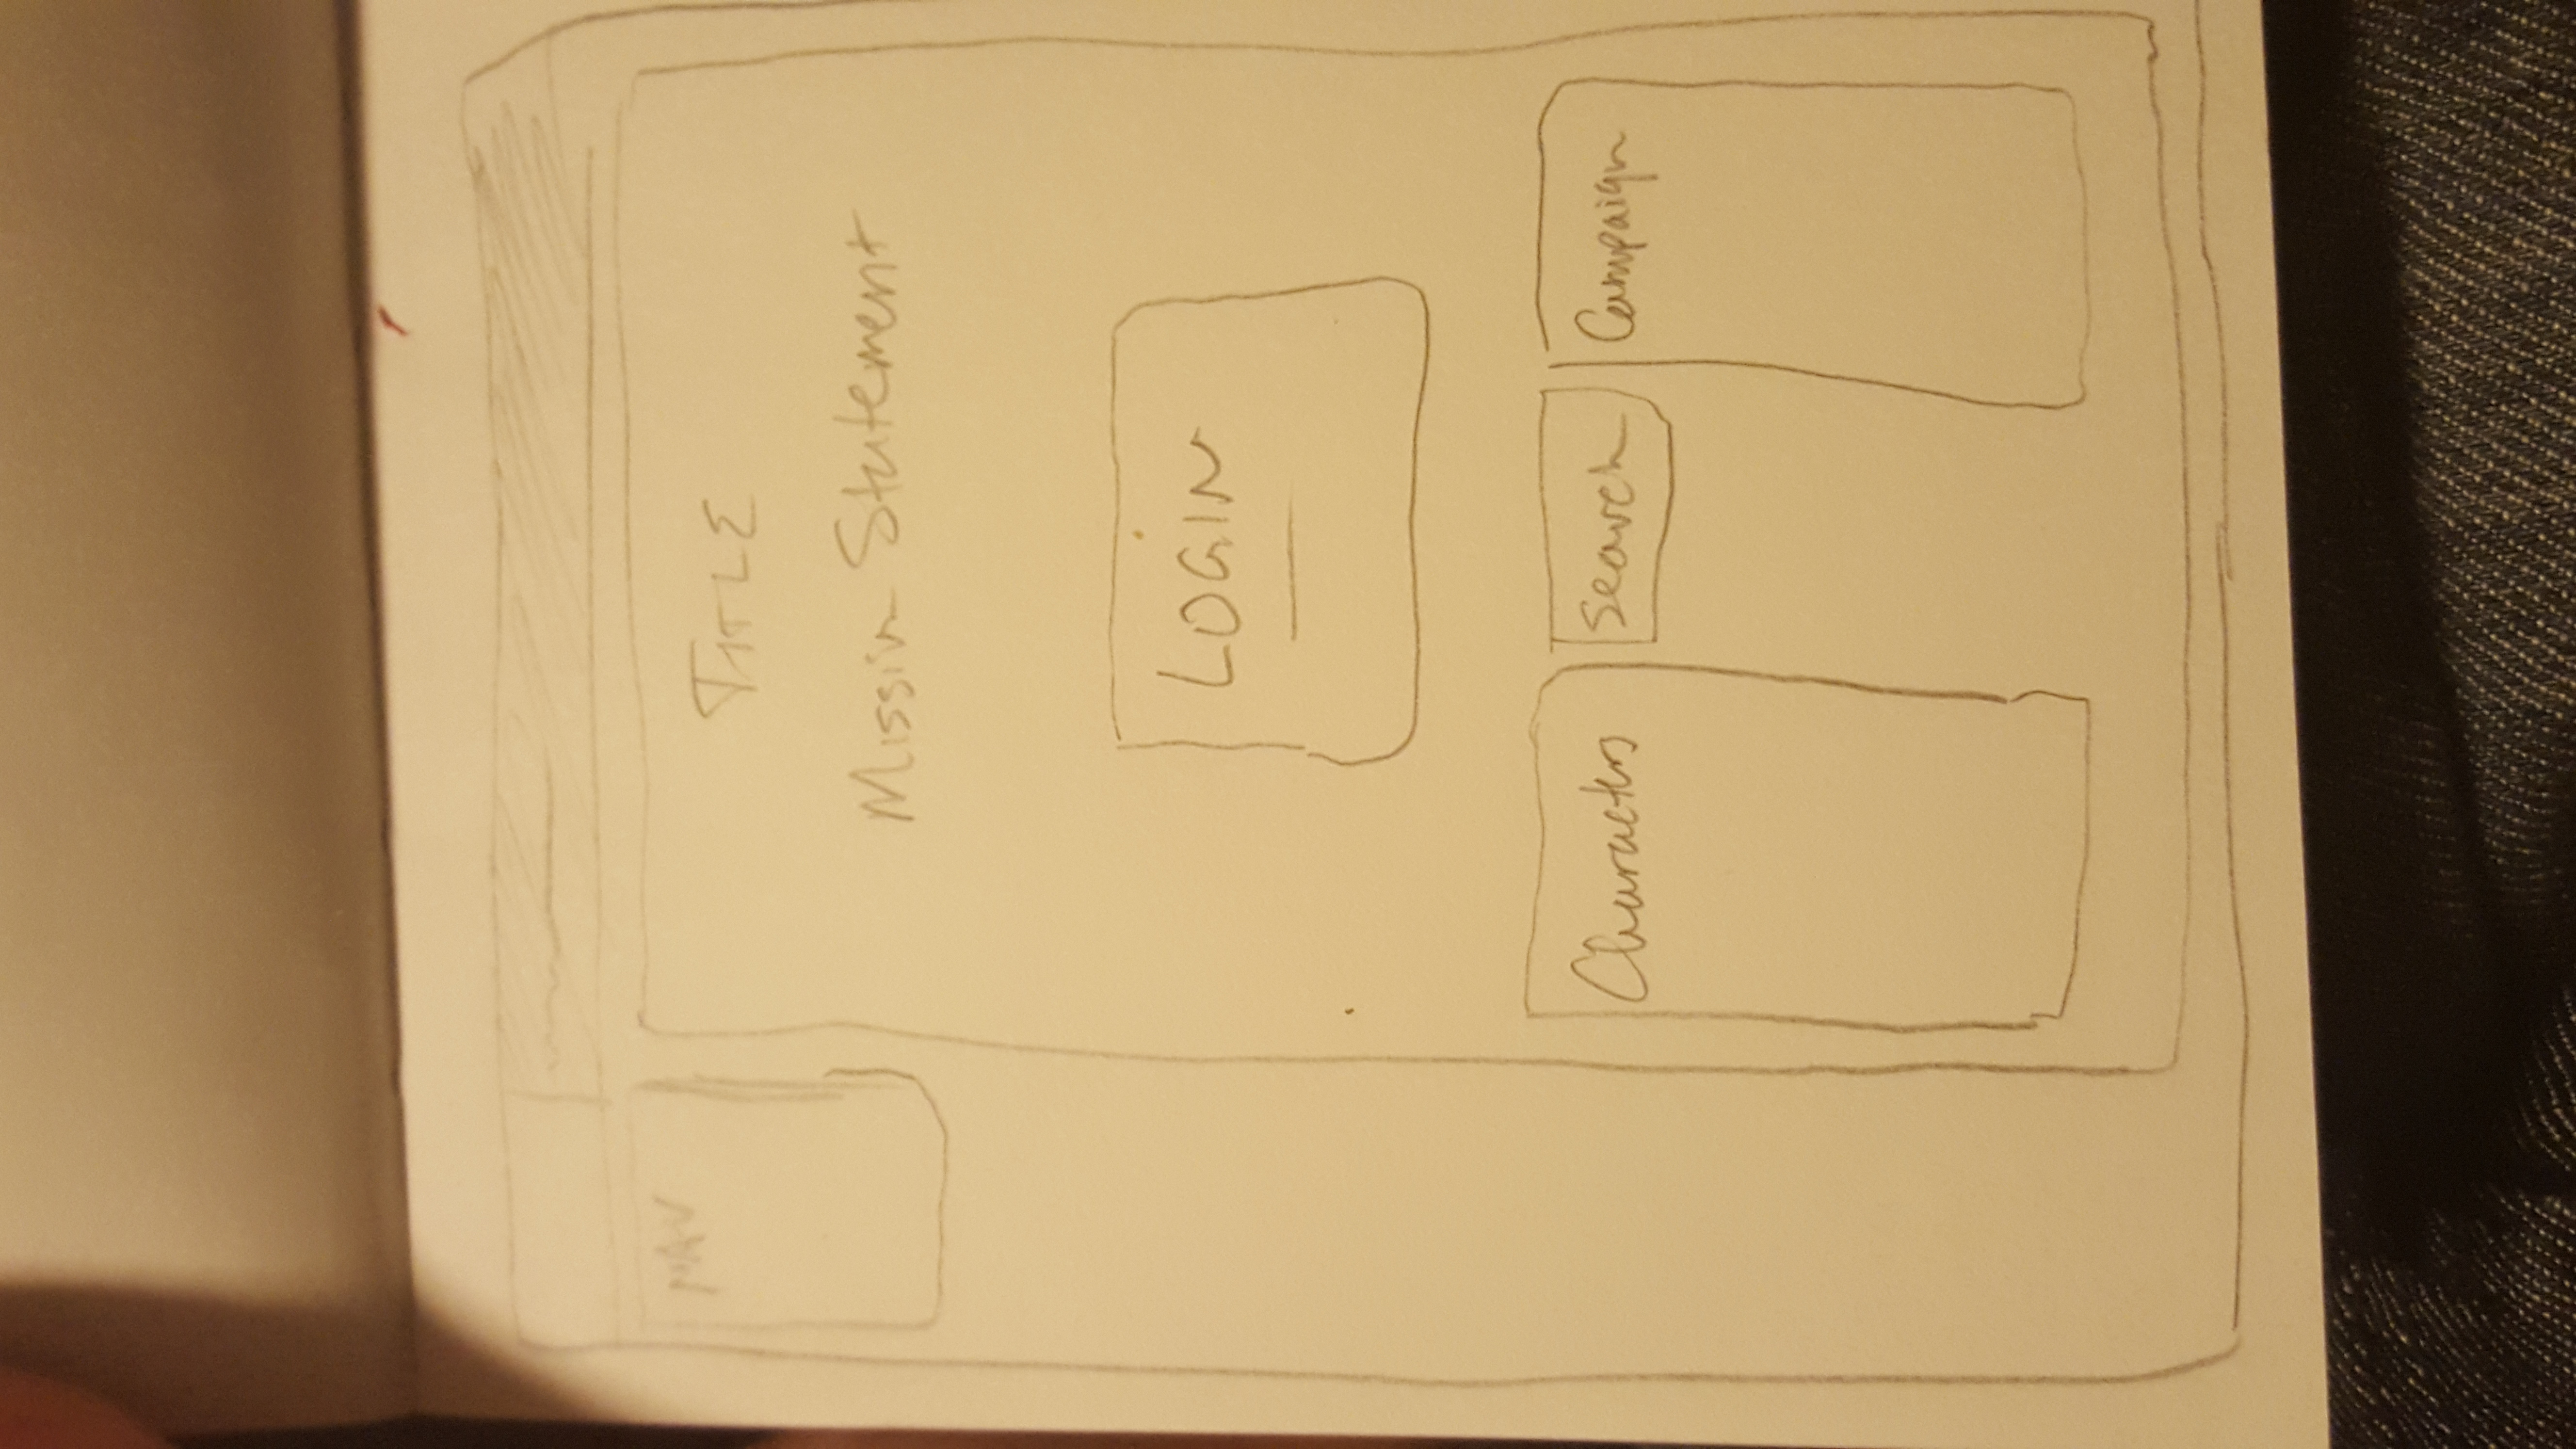 NAV
TITLE
Mission Statement
LOGIN
Characters
Search
Campaign